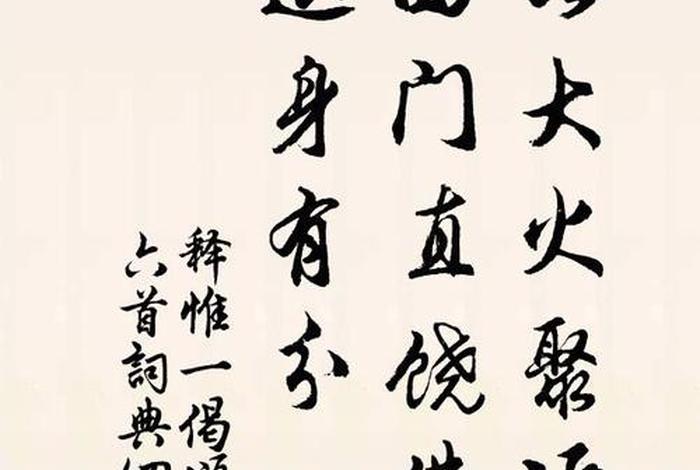 大火聚
门直饶
身有分
释惟一偈
六首詞典